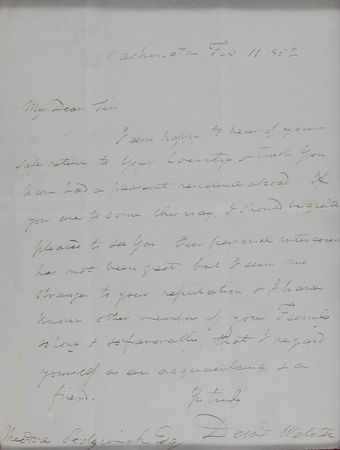 Washington Feb 11. 1852
My Dear Sir
I am happy to hear of your
safe return to your Country & trust you
have had a pleasant residence abroad. If
you are to come this way, I should be quite
pleased to see you. Our personal intercourse
has not been great, but I am no
stranger to your reputation, & I have
known other members of your Family
so long & so favorably, that I regard
yourself as an acquaintance & a
friend.
Yrs truly
Danl Webster
Theodore Sedgwick Esq